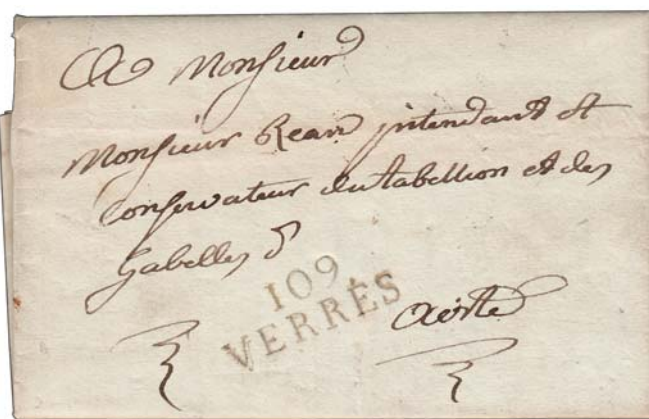 A Monsieur
Monsieur Rean intendant et
conservateur du tabellion et des
gabelles d
109
VERRÈS
Aoste